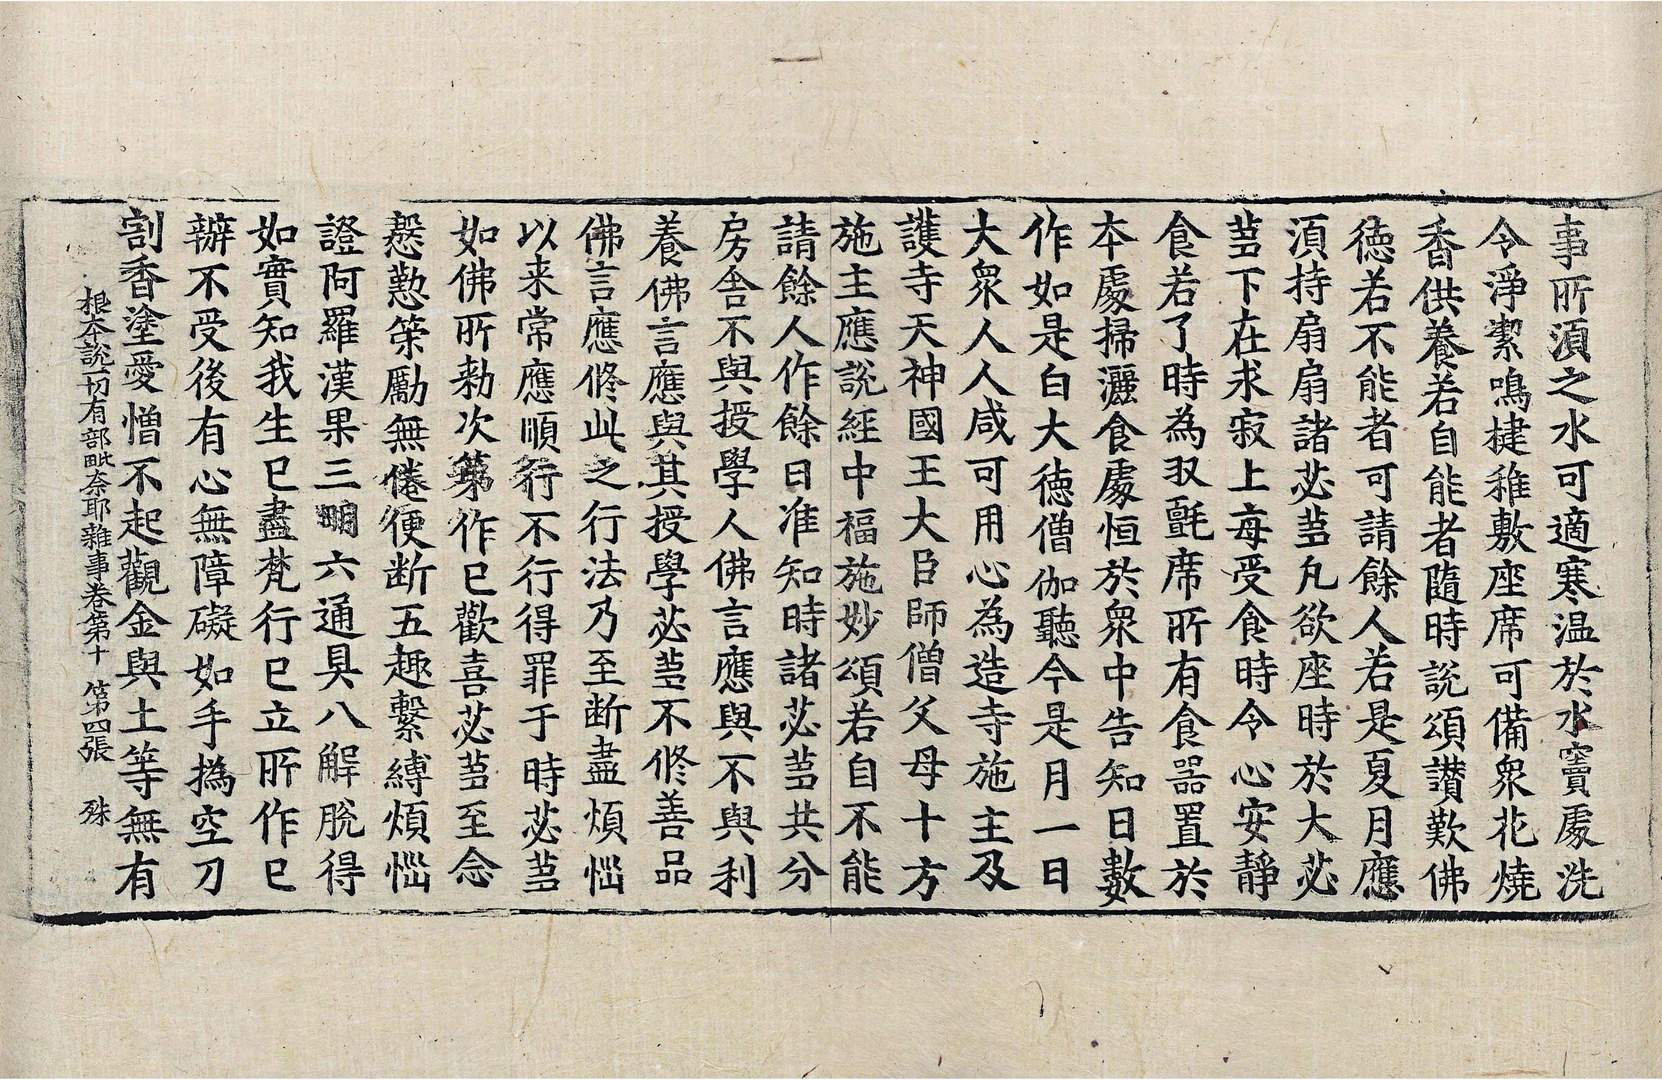 事所湏之水可適寒温於水竇處洗
令淨潔鳴揵稚敷座席可備衆花燒
香供養若自能者隨時說頌讃歎佛
徳若不能者可請餘人若是夏月應
湏持扇扇諸苾蒭凡欲座時於大苾
蒭下在求寂上毎受食時令心安靜
食若了時為収氈席所有食器置於
夲處掃灑食處恒於衆中告知日數
作如是白大徳僧伽聽今是月一日
大衆人人咸可用心為造寺施主及
護寺天神國王大臣師僧父母十方
施主應說經中福施妙頌若自不能
請餘人作餘日准知時諸苾蒭共分
房舎不與授學人佛言應與不與利
養佛言應與其授學苾蒭不修善品
佛言應修此之行法乃至断盡煩惱
以来常應順行不行得罪于時苾蒭
如佛所勑次第作已歡喜苾蒭至念
慇懃策勵無倦便断五趣繫縛煩惱
證阿羅漢果三明六通具八解脫得
如實知我生已盡梵行已立所作已
辦不受後有心無障礙如手撝空刀
割香塗愛憎不起觀金與土等無有
根夲說一切有部毗奈耶雜事卷第十 第四張 殊